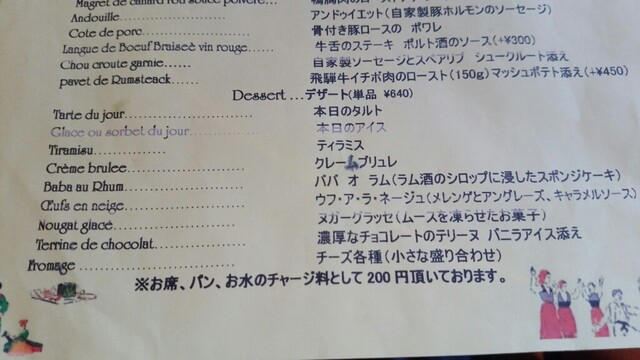 Magret de canard rou sauce poivere...
Andouille............ アンドゥイエット(自家製豚ホルモンのソーセージ)
Cote de porc............ 骨付き豚ロースの ポワレ
Langue de Boeuf Braiseè vin rouge...... 牛舌のステーキ ポルト酒のソース(+¥300)
Chou croute garnie...... 自家製ソーセージとスペアリブ シュークルート添え
pavet de Rumsteack...... 飛騨牛イチボ肉のロースト(150g)マッシュポテト添え(+¥450)
Dessert ...デザート(単品 ¥640)
Tarte du jour........................... 本日のタルト
Glace ou sorbet du jour............... 本日のアイス
Tiramisu............... ティラミス
Crème brulee........................ クレームブリュレ
Baba au Rhum........................ ババ オ ラム(ラム酒のシロップに浸したスポンジケーキ)
Œufs en neige........................ ウフ・ア・ラ・ネージュ(メレンゲとアングレーズ、キャラメルソース)
Nougat glacé........................ ヌガーグラッセ(ムースを凍らせたお菓子)
Terrine de chocolat.................. 濃厚なチョコレートのテリーヌ バニラアイス添え
Fromage ........................... チーズ各種(小さな盛り合わせ)
※お席、パン、お水のチャージ料として200円頂いております。